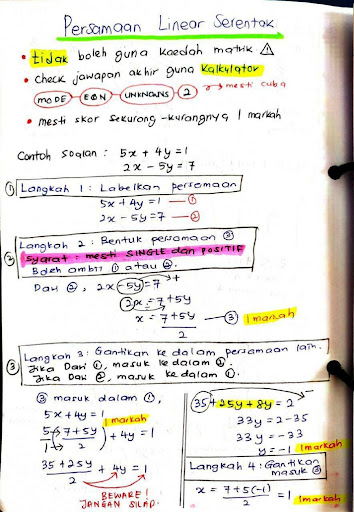 Persamaan Linear Serentak
• tidak boleh guna kaedah matrik ⚠
• check jawapan akhir guna kalkulator
MODE EQN UNKNOWNS 2 → mesti cuba
• mesti skor sekurang-kurangnya 1 markah
Contoh soalan : 5x + 4y = 1
2x - 5y = 7
① Langkah 1 : Labelkan persamaan
5x + 4y = 1 — ①
2x - 5y = 7 — ②
② Langkah 2 : Bentuk persamaan ③
Syarat : mesti SINGLE dan POSITIF
Boleh ambil ① atau ②.
Dari ②, 2x - 5y = 7 +
2x = 7 + 5y
x = 7 + 5y — ③ 1 markah
2
③ Langkah 3 : Gantikan ke dalam persamaan lain.
Jika Dari ①, masuk ke dalam ②.
Jika Dari ②, masuk ke dalam ①.
③ masuk dalam ①,
5x + 4y = 1
1 markah
5 (7 + 5y) + 4y = 1
1 → 2
35 + 25y + 4y = 1
2
BEWARE!
JANGAN SILAP.
35 + 25y + 8y = 2
33y = 2 - 35
33y = -33
y = -1 1 markah
Langkah 4 : Gantikan
masuk ③
x = 7 + 5(-1) = 1 1 markah
2